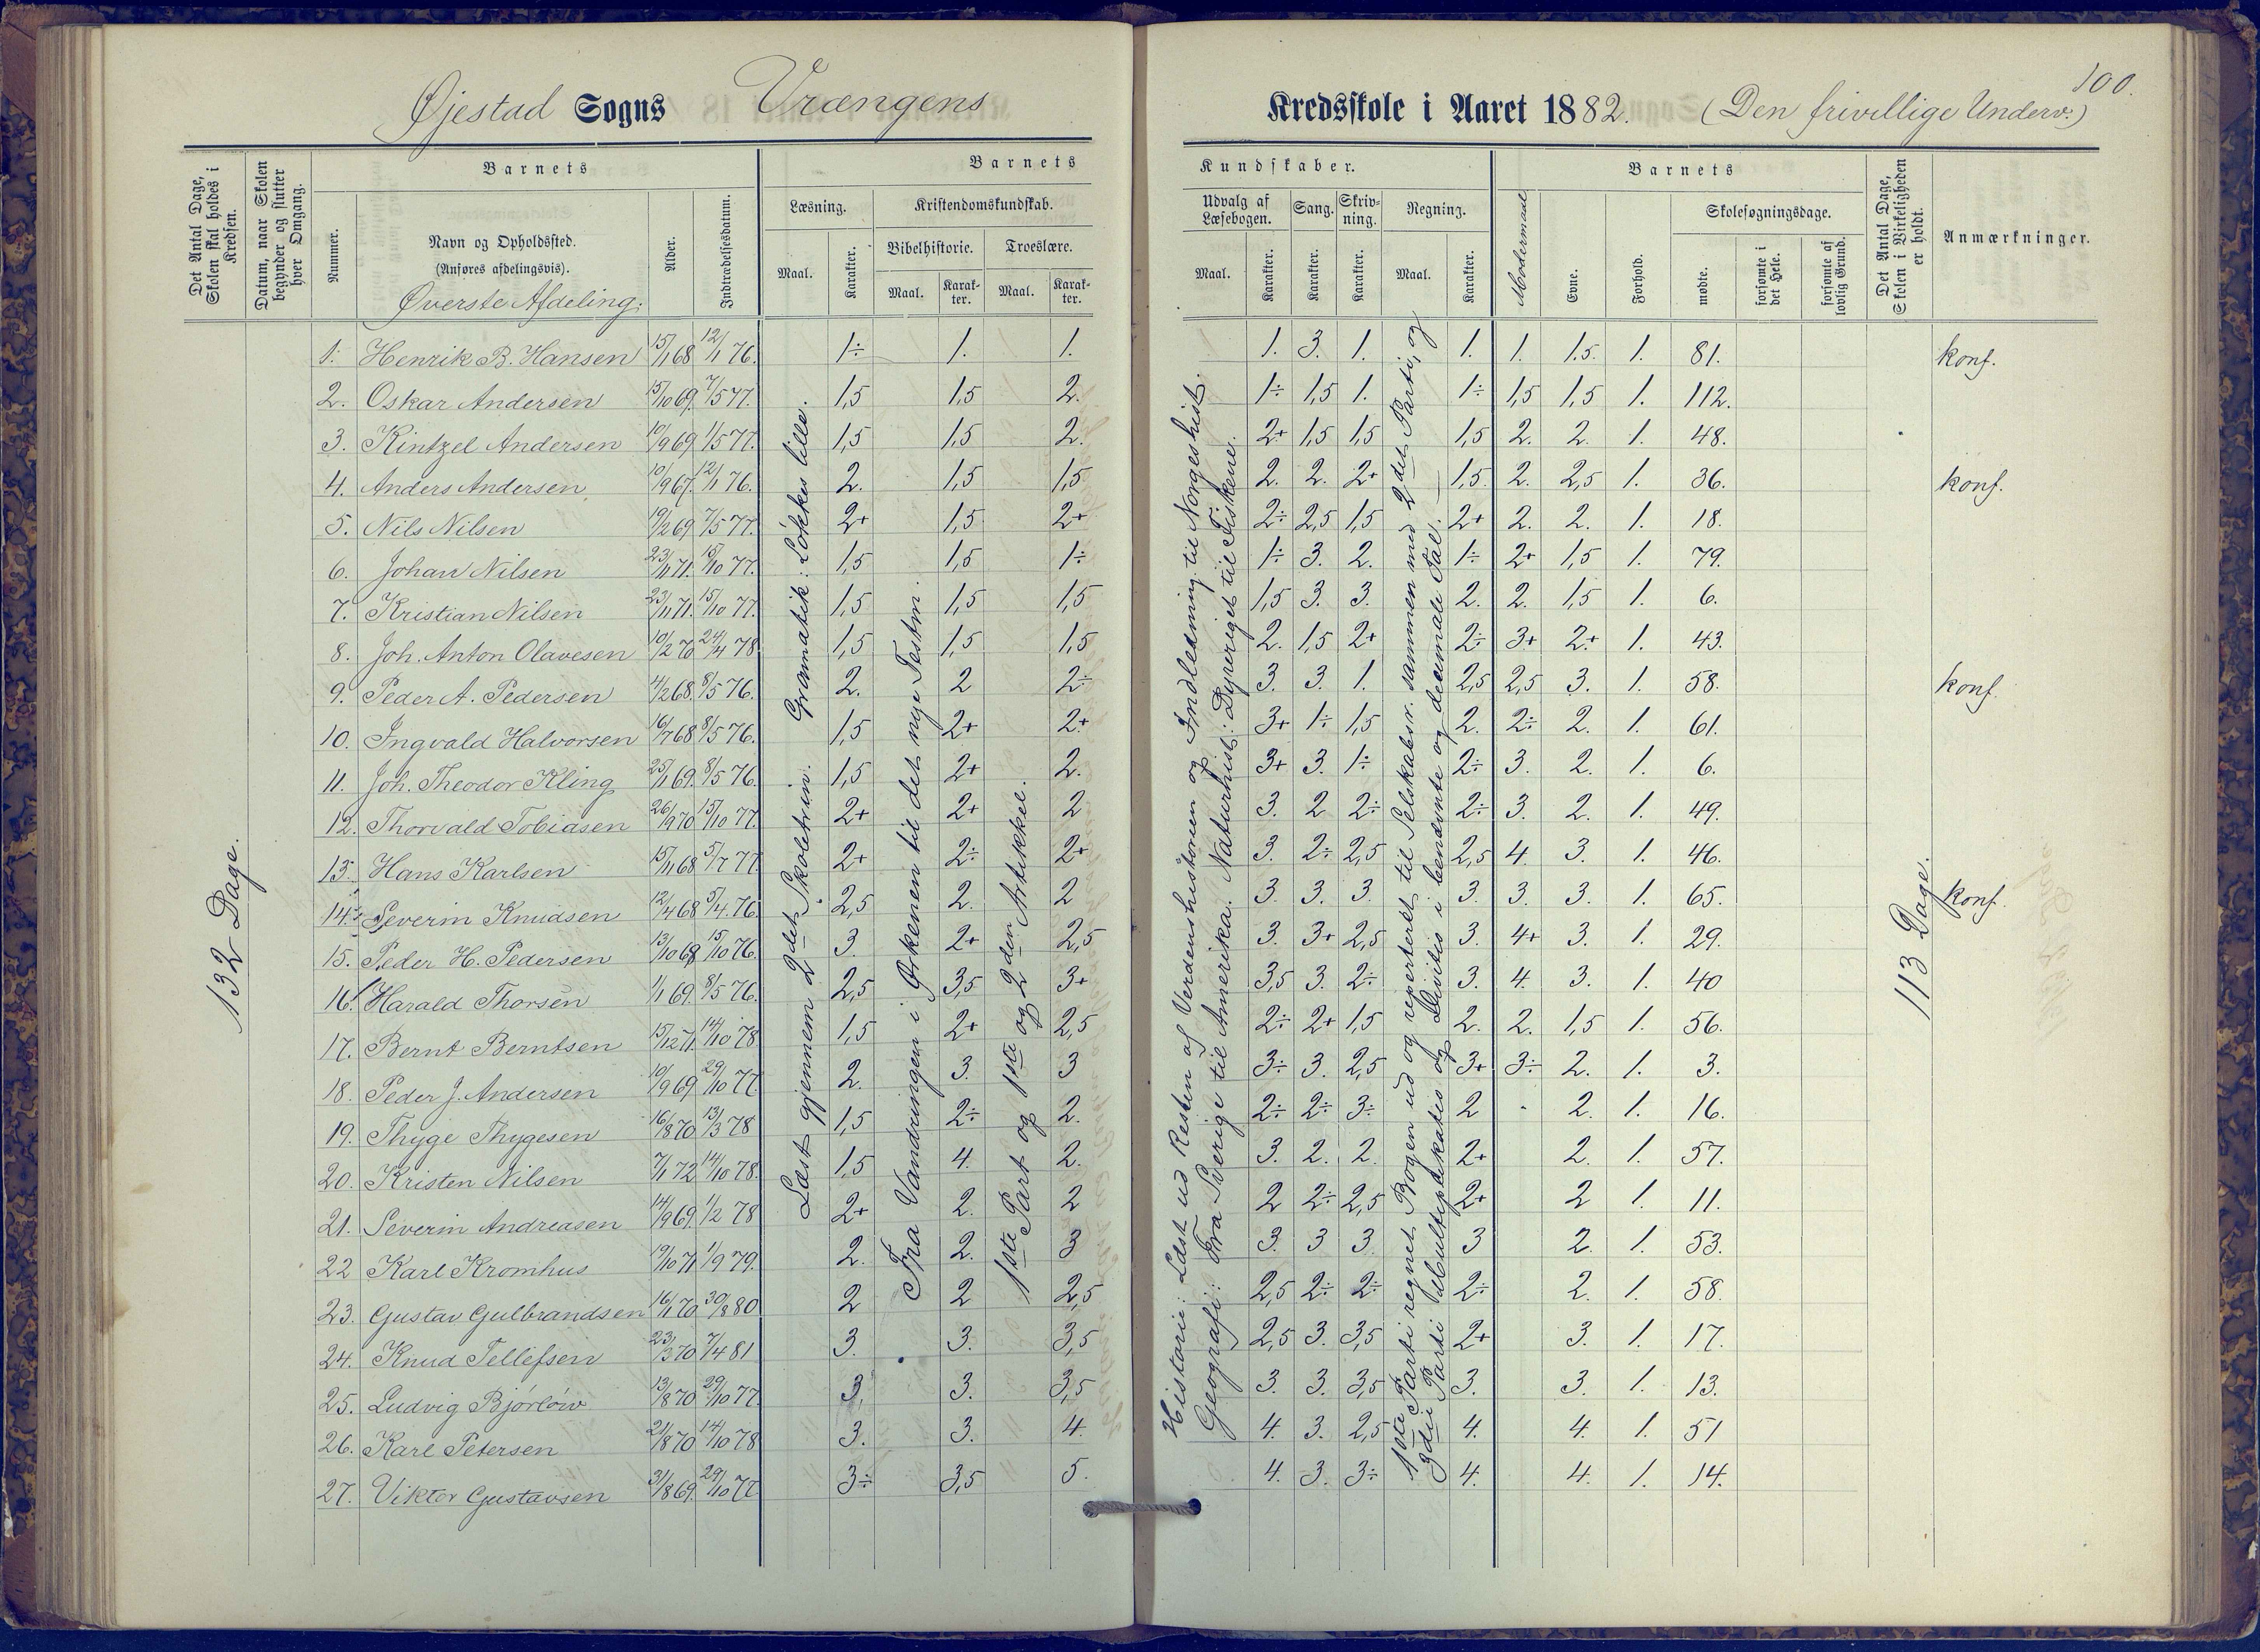 Øjestad Sogns Vrængens
Kredsskole i Aaret 1882. (Den frivillige Underv.)
100.
Det Antal Dage, Skolen skal holdes i Kredsen.
Datum, naar Skolen begynder og slutter hver Omgang.
Barnets
Nummer.
Navn og Opholdssted.
(Anføres afdelingsvis).
Øverste Afdeling.
Alder.
Indtrædelsesdatum.
Barnets
Læsning.
Maal.
Karakter.
Kristendomskundskab.
Bibelhistorie.
Maal.
Karakter.
Troeslære.
Maal.
Karakter.
Kundskaber.
Udvalg af Læsebogen.
Maal.
Karakter.
Sang.
Karakter.
Skrivning.
Karakter.
Regning.
Maal.
Karakter.
Barnets
Modermaal
Evne.
Forhold.
Skolesøgningsdage.
mødte.
forsømte i det Hele.
forsømte af lovlig Grund.
Det Antal Dage, Skolen i Virkeligheden er holdt.
Anmærkninger.
132 Dage.
Læst gjennem 2det Skoletrin. Gramatik: Løkkes lille.
Fra Vandringen i Ørkenen til det nye Testm.
1ste Part og 1ste og 2den Artikkel.
Historie: Læst ud Resten af Verdenshistorien og Indledning til Norgeshist.
Geografi: Fra Sverige til Amerika. Naturhist: Dyreriget til Fiskene.
1ste Parti regnet Bogen ud og repeteret til Selskabsr. sammen med 2det Parti, og
3die Parti Multiplikatis og Divitis i benævnte og decimale Tal.
113 Dage.
1. Henrik B. Hansen 15/1 68 12/1 76. 1÷ 1. 1. 1. 3. 1. 1. 1. 1.5. 1. 81. konf.
2. Oskar Andersen 15/10 69. 7/5 77. 1,5 1,5 2. 1÷ 1,5 1. 1÷ 1,5 1,5 1. 112.
3. Kintzel Andersen 10/9 69 1/5 77. 1,5 1,5 2. 2+ 1,5 1,5 1,5 2. 2. 1. 48.
4. Anders Andersen 10/9 67. 12/1 76. 2. 1,5 1,5 2. 2. 2+ 1,5. 2. 2,5 1. 36. konf.
5. Nils Nilsen 19/2 69 7/5 77. 2+ 1,5 2+ 2÷ 2,5 1,5 2+ 2. 2. 1. 18.
6. Johan Nilsen 23/11 71. 15/10 77. 1,5 1,5 1÷ 1÷ 3. 2. 1÷ 2+ 1,5 1. 79.
7. Kristian Nilsen 23/11 71. 15/10 77. 1,5 1,5 1,5 1,5 3. 3. 2. 2. 1,5 1. 6.
8. Joh. Anton Olavesen 10/2 70 24/4 78 1,5 1,5 1,5 2. 1,5 2+ 2÷ 3+ 2+ 1. 43.
9. Peder A. Pedersen 4/2 68. 8/5 76. 2. 2 2÷ 3. 3. 1. 2,5 2,5 3. 1. 58. konf.
10. Ingvald Halvorsen 16/7 68 8/5 76. 1,5 2+ 2+ 3+ 1÷ 1,5 2. 2÷ 2. 1. 61.
11. Joh. Theodor Kling 25/1 69. 8/5 76. 1,5 2+ 2. 3+ 3. 1÷ 2÷ 3. 2. 1. 6.
12. Thorvald Tobiasen 26/9 70 15/10 77. 2+ 2+ 2 3. 2 2÷ 2÷ 3. 2. 1. 49.
13. Hans Karlsen 15/11 68 5/7 77. 2+ 2÷ 2+ 3. 2÷ 2,5 2,5 4. 3. 1. 46.
14. Severin Knudsen 12/4 68 5/4 76. 2,5 2. 2 3. 3. 3. 3. 3. 3. 1. 65. konf.
15. Peder H. Pedersen 13/10 68 15/10 76. 3. 2+ 2,5 3. 3+ 2,5 3. 4+ 3. 1. 29.
16. Harald Thorsen 1/1 69. 8/5 76. 2,5 3,5 3+ 3,5 3. 2÷ 3. 4. 3. 1. 40
17. Bernt Berntsen 15/12 71. 14/10 78. 1,5 2+ 2,5 2÷ 2+ 1,5 2. 2. 1,5 1. 56.
18. Peder J. Andersen 10/9 69 29/10 77. 2. 3. 3 3÷ 3. 2,5 3+ 3÷ 2. 1. 3.
19. Thyge Thygesen 16/8 70 13/3 78 1,5 2÷ 2. 2÷ 2÷ 3÷ 2 - 2. 1. 16.
20. Kristen Nilsen 7/1 72 14/10 78. 1,5 4. 2. 3. 2. 2. 2+ 2. 1. 57.
21. Severin Andreasen 14/9 69. 1/2 78 2+ 2. 2 2 2÷ 2,5 2+ 2 1. 11.
22 Karl Kromhus 19/10 71 1/9 79. 2. 2. 3 3. 3 3. 3 2. 1. 53.
23. Gustav Gulbrandsen 16/1 70 30/8 80 2 2 2,5 2,5 2÷ 2÷ 2÷ 2. 1. 58.
24. Knud Tellefsen 23/3 70 7/4 81 3. 3. 3,5 2,5 3. 3,5 2+ 3. 1. 17.
25. Ludvig Bjørløw 13/8 70 29/10 77. 3. 3. 3,5 3. 3. 3,5 3. 3. 1. 13.
26. Karl Petersen 21/8 70 14/10 78 3. 3. 4. 4. 3. 2,5 4. 4. 1. 51
27. Viktor Gustavsen 31/8 69. 29/10 77. 3÷ 3,5 5. 4. 3. 3÷ 4. 4. 1. 14.